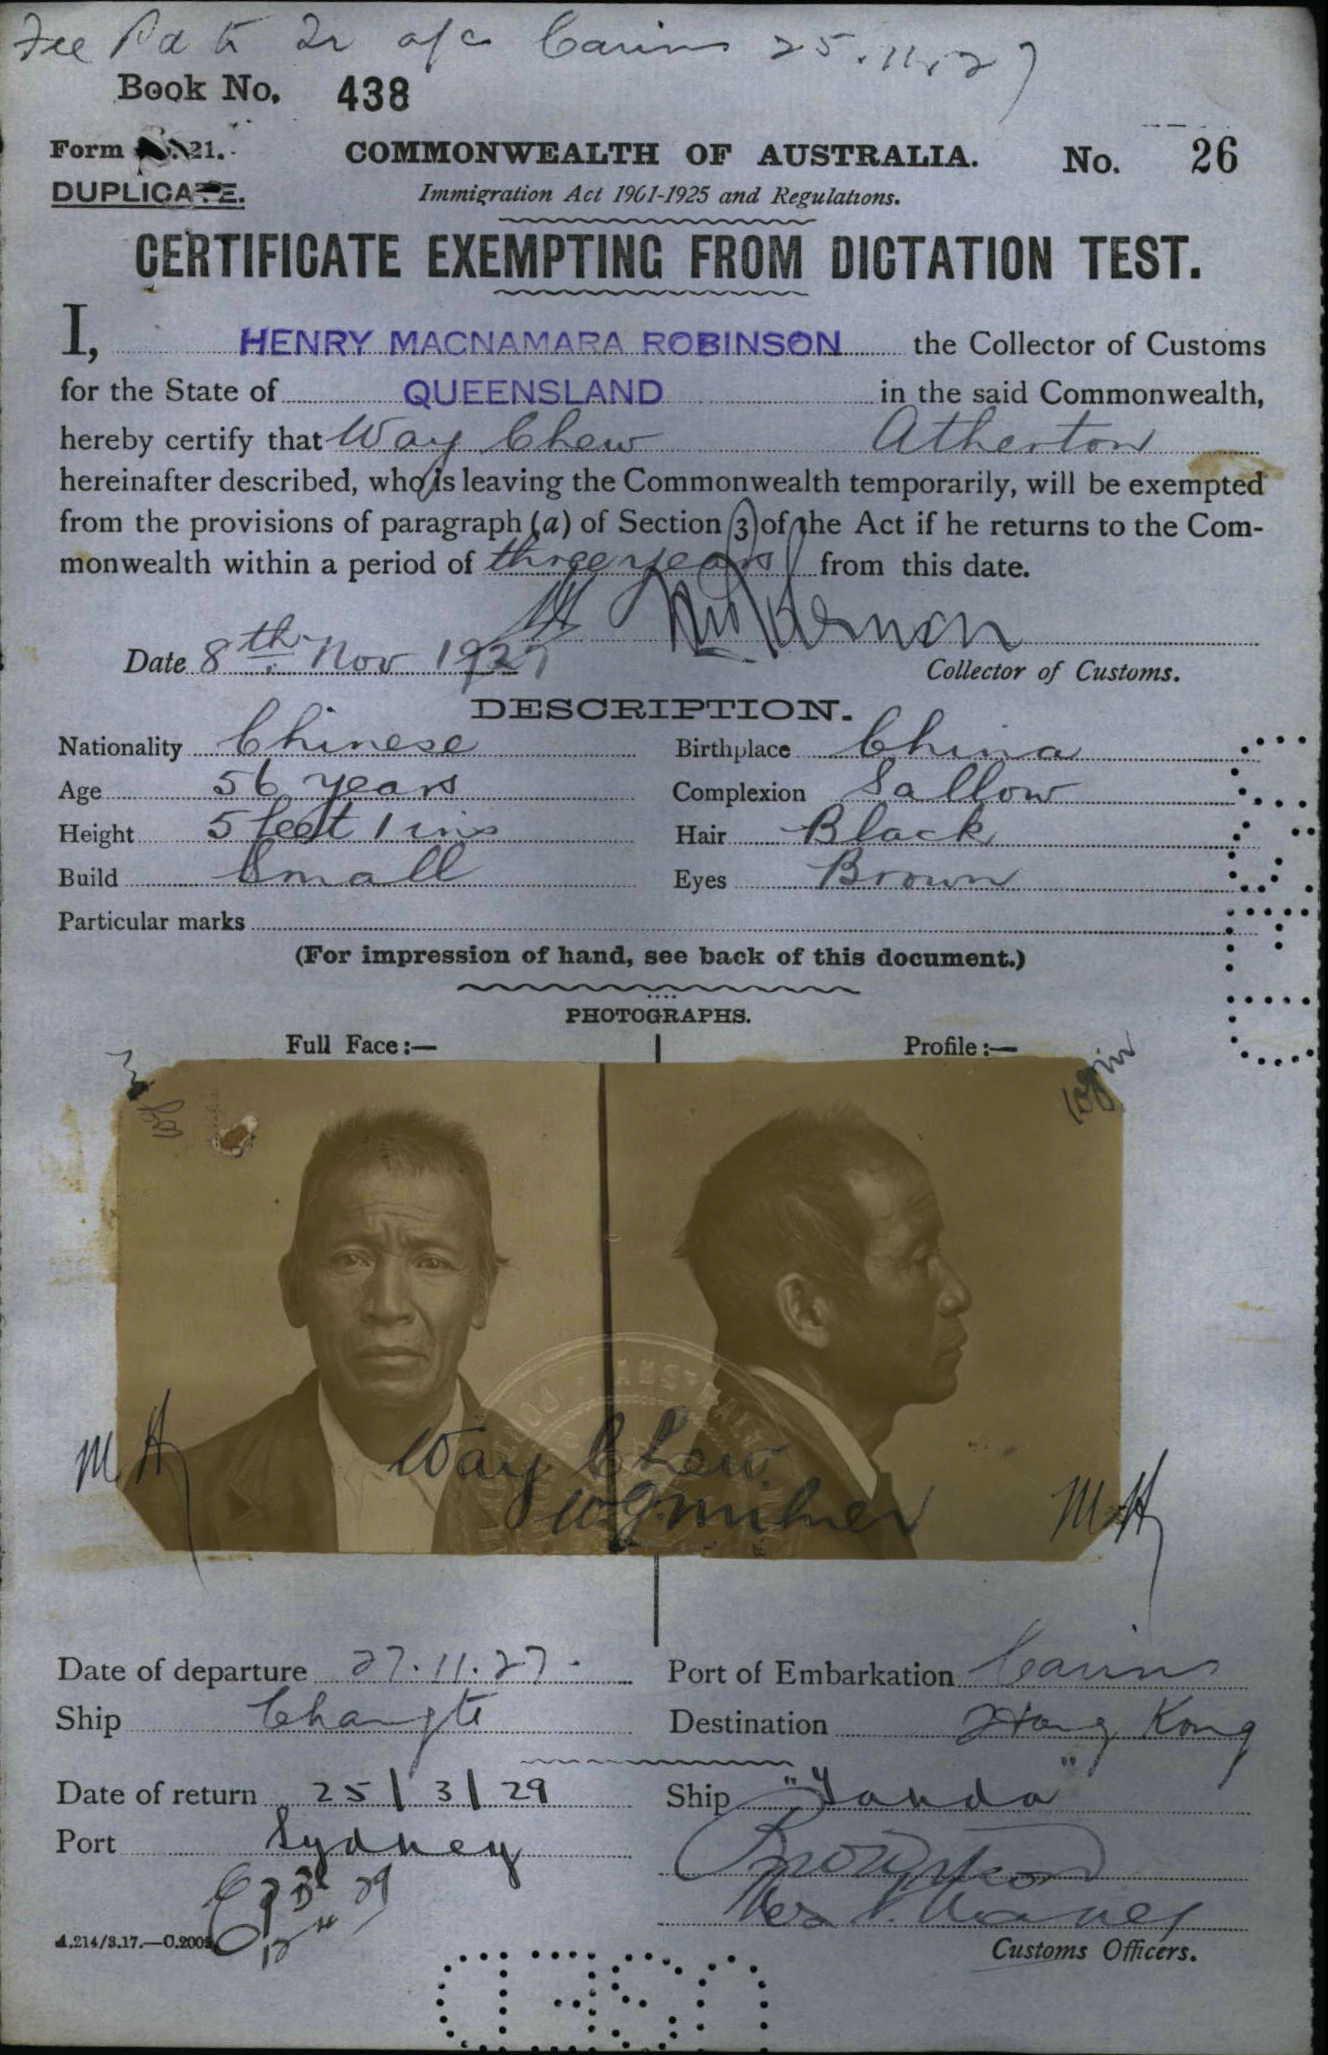 Fee Pd to Dr a/c Cairns 25.11.27
Book No. 438
Form 21.
COMMONWEALTH OF AUSTRALIA.
No. 26
DUPLICATE.
Immigration Act 1901-1925 and Regulations.
CERTIFICATE EXEMPTING FROM DICTATION TEST.
I, HENRY MACNAMARA ROBINSON the Collector of Customs
for the State of QUEENSLAND in the said Commonwealth,
hereby certify that Way Chew Atherton
hereinafter described, who is leaving the Commonwealth temporarily, will be exempted
from the provisions of paragraph (a) of Section 3 of the Act if he returns to the Com-
monwealth within a period of three years from this date.
Date 8th Nov 1927
Collector of Customs.
DESCRIPTION.
Nationality Chinese Birthplace China
Age 56 years Complexion Sallow
Height 5 feet 1 ins Hair Black
Build Small Eyes Brown
Particular marks
(For impression of hand, see back of this document.)
PHOTOGRAPHS.
Full Face:— Profile:—
M H
Way Chew
W G Milner
M H
Date of departure 27.11.27. Port of Embarkation Cairns
Ship Changte Destination Hong Kong
Date of return 25/3/29 Ship "Tanda"
Port Sydney
Customs Officers.
USED